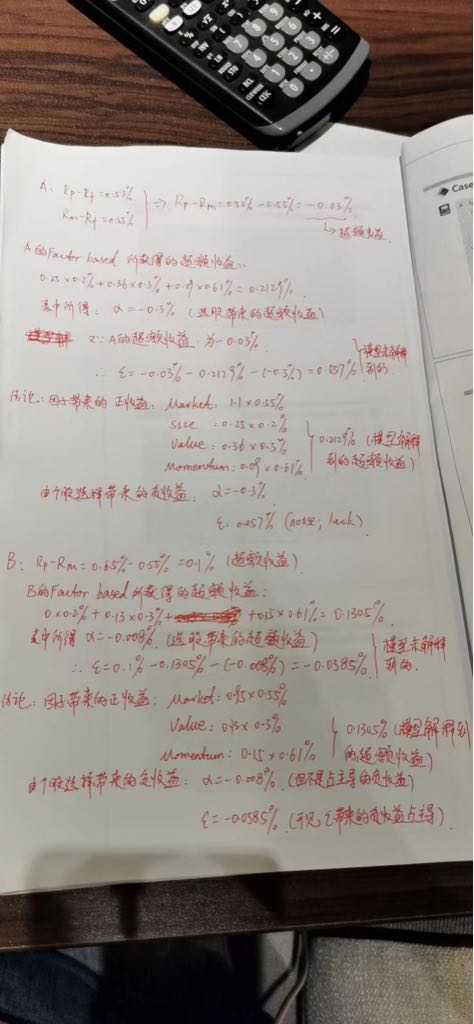 Case
A: Rp-Rf=0.52%
Rm-Rf=0.55%
⇒ Rp-Rm=0.52%-0.55%=-0.03%
↳超额收益
A的Factor based 所获得的超额收益:
0.25×0.2%+0.36×0.3%+0.09×0.61%=0.2129%
表中所得. α=-0.3% (选股带来的超额收益)
又∵A的超额收益为-0.03%
∴ ε=-0.03%-0.2129%-(-0.3%)=0.057%
模型未解释到的.
结论: 因子带来的正收益: Market: 1.1×0.55%
size: 0.25×0.2%
Value: 0.36×0.3%
Momentum: 0.09×0.61%
0.2129% (模型解释到的超额收益)
由个股选择带来的负收益: α=-0.3%
ε=0.057% (noise; luck)
B: Rp-Rm=0.65%-0.55%=0.1% (超额收益)
B的Factor based 所获得的超额收益:
0×0.2%+0.13×0.3%+ +0.15×0.61%=0.1305%
表中所得 α=-0.008% (选股带来的超额收益)
∴ ε=0.1%-0.1305%-(-0.008%)=-0.0385%
模型未解释到的.
结论: 因子带来的正收益: Market: 0.95×0.55%
Value: ×0.3%
Momentum: 0.15×0.61%
0.1305% (模型解释到的超额收益)
由个股选择带来的负收益: α=-0.008% (但不是占主导的负收益)
ε=-0.0385% (可见ε带来的负收益占主导)